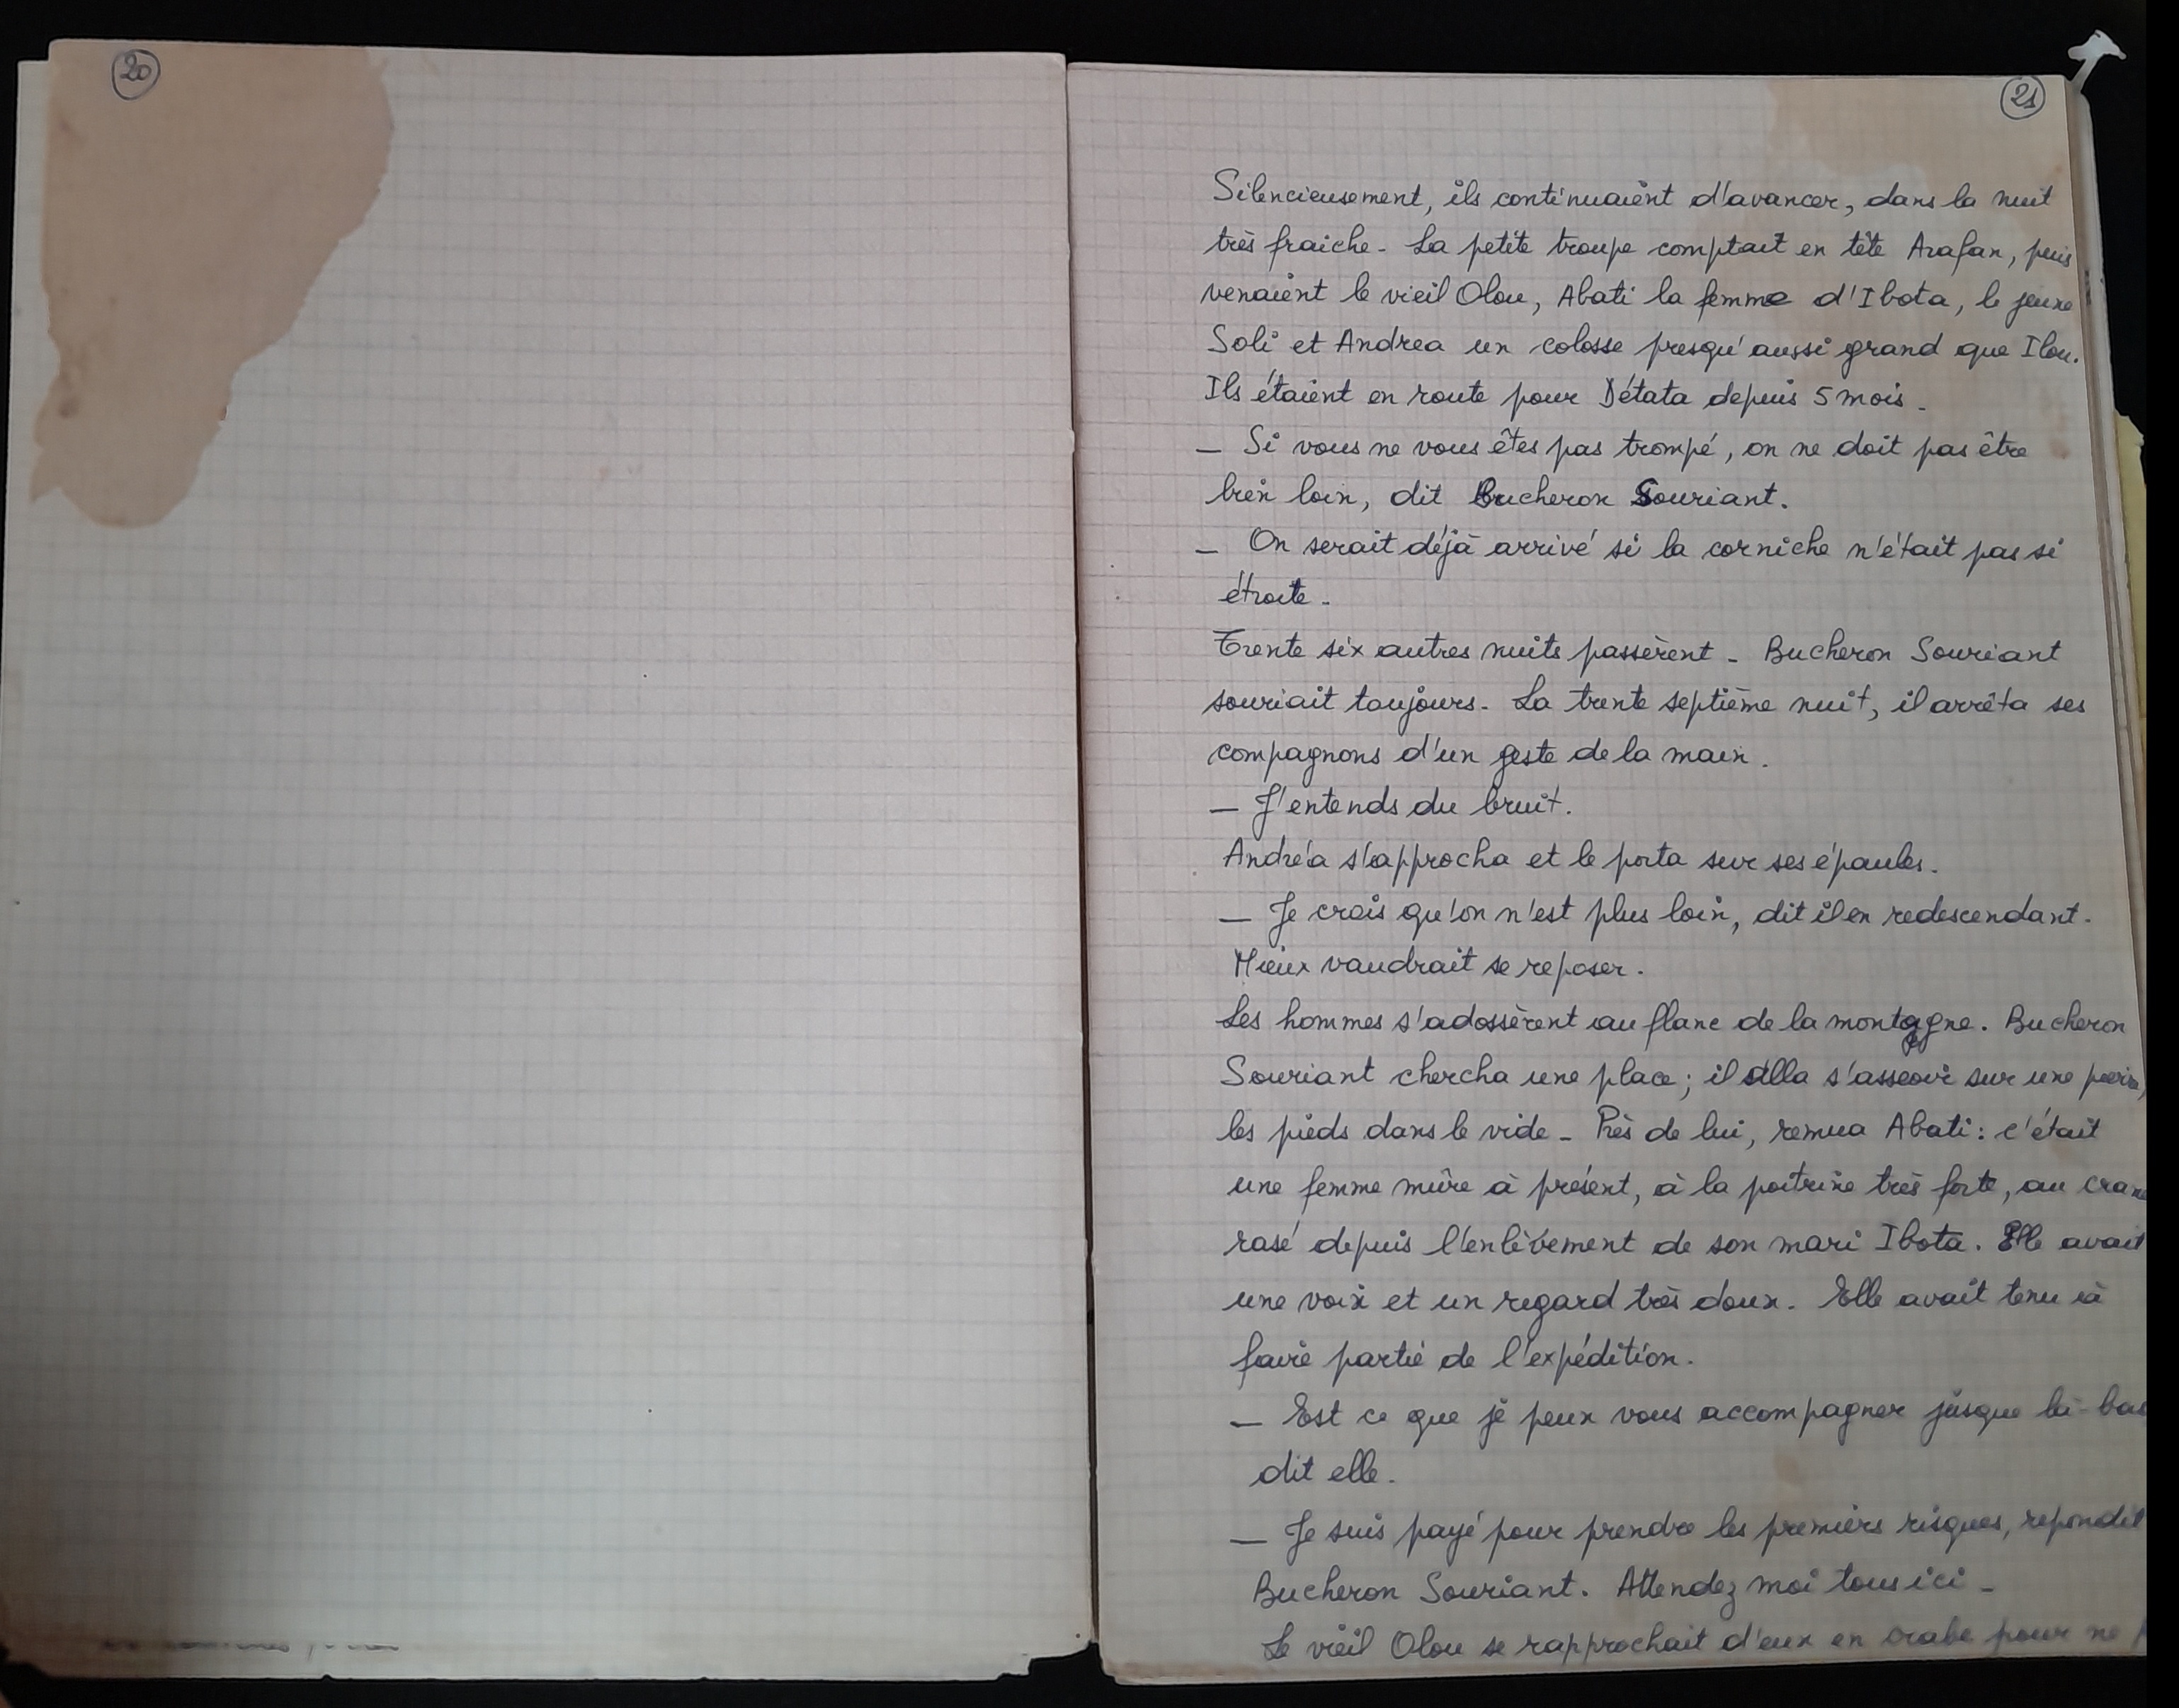 20
21
Silencieusement, ils continuaient d'avancer, dans la nuit
très fraiche. La petite troupe comptait en tête Arafan, puis
venaient le vieil Olou, Abati la femme d'Ibota, le jeune
Soli et Andrea un colosse presqu'aussi grand que Ilou.
Ils étaient en route pour Détata depuis 5 mois.
_ Si vous ne vous êtes pas trompé, on ne doit pas être
bien loin, dit Bucheron Souriant.
_ On serait déjà arrivé si la corniche n'était pas si
étroite.
Trente six autres nuits passèrent. Bucheron Souriant
souriait toujours. La trente septième nuit, il arrêta ses
compagnons d'un geste de la main.
_ J'entends du bruit.
Andréa s'approcha et le porta sur ses épaules.
_ Je crois qu'on n'est plus loin, dit il en redescendant.
Mieux vaudrait se reposer.
Les hommes s'adossèrent au flanc de la montagne. Bucheron
Souriant chercha une place ; il alla s'asseoir sur une
les pieds dans le vide. Près de lui, remua Abati : c'était
une femme mûre à présent, à la poitrine très forte, au crane
rasé depuis l'enlèvement de son mari Ibota. Elle avait
une voix et un regard très doux. Elle avait tenu à
faire partie de l'expédition.
_ Est ce que je peux vous accompagner jusque là-bas
dit elle.
_ Je suis payé pour prendre les premiers risques, repondit
Bucheron Souriant. Attendez moi tous ici.
Le vieil Olou se rapprochait d'eux en crabe pour ne